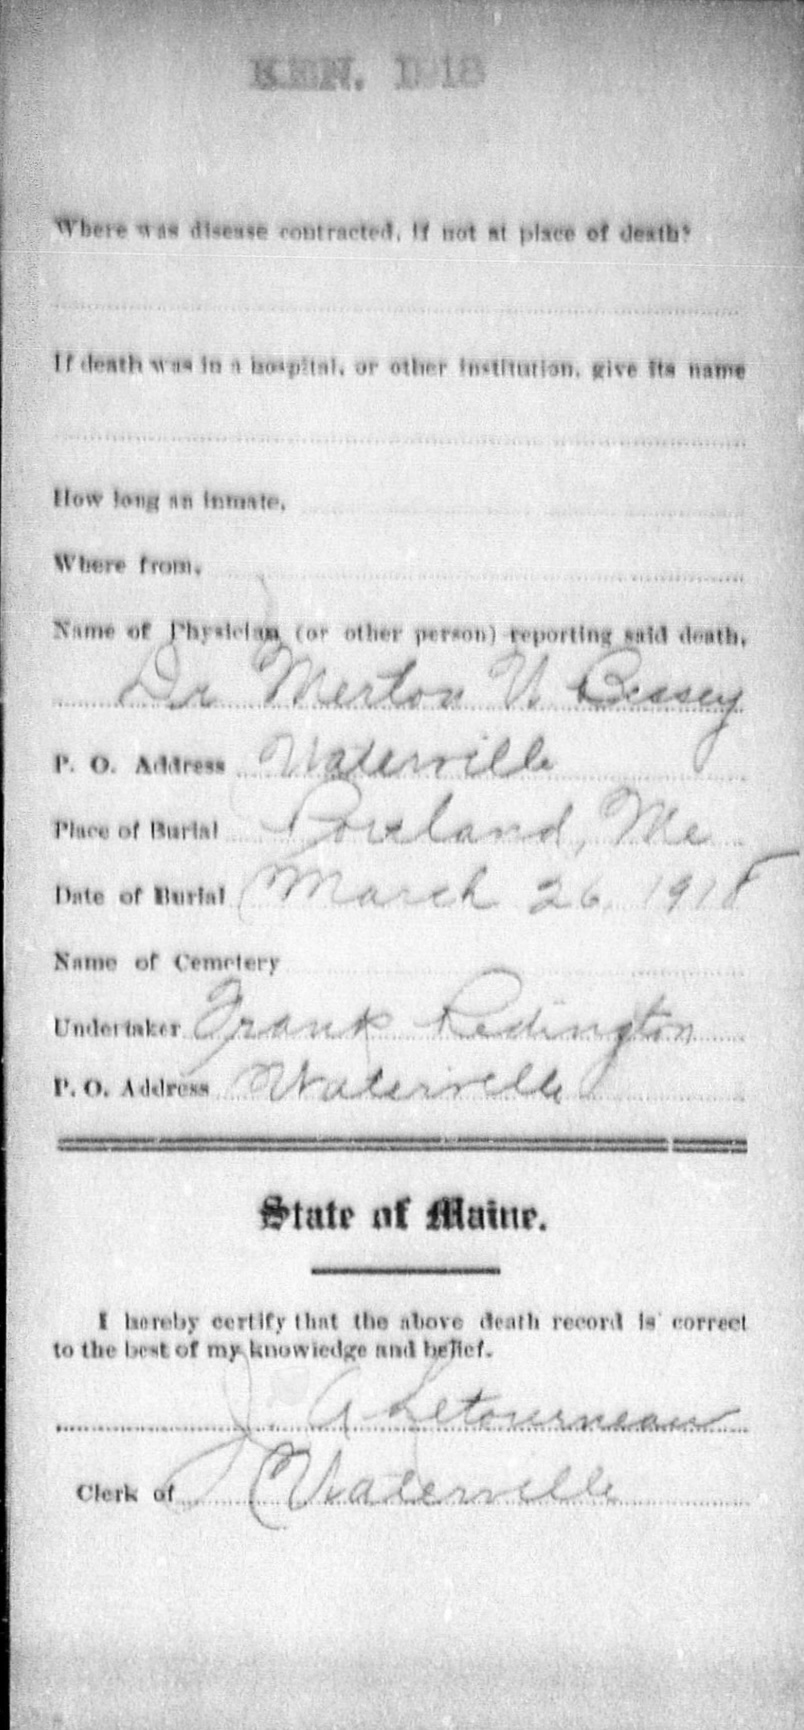 KEN. 1918
Where was disease contracted, if not at place of death?
If death was in a hospital, or other institution, give its name
How long an inmate,
Where from,
Name of Physician (or other person) reporting said death,
Dr Merton W Bessey
P. O. Address Waterville
Place of Burial Portland, Me
Date of Burial March 26, 1918
Name of Cemetery
Undertaker Frank Redington
P. O. Address Waterville
State of Maine.
I hereby certify that the above death record is correct
to the best of my knowledge and belief.
J. A Letourneau
Clerk of Waterville